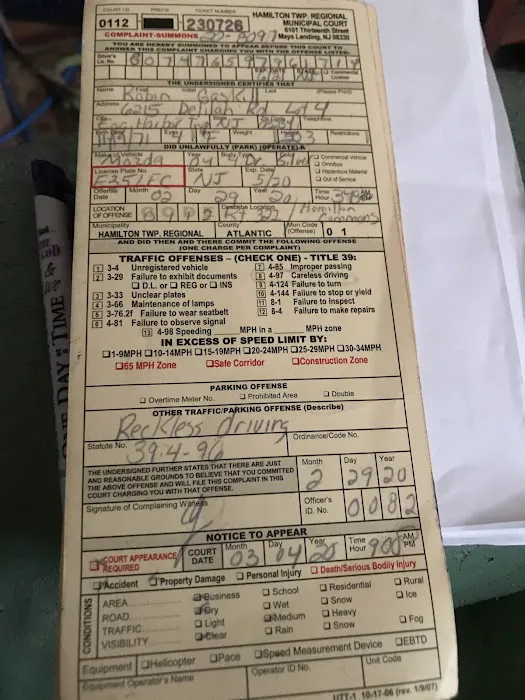 COURT I.D. PREFIX TICKET NUMBER
0112 230726
HAMILTON TWP. REGIONAL
MUNICIPAL COURT
6101 Thirteenth Street
Mays Landing, NJ 08330
COMPLAINT-SUMMONS
YOU ARE HEREBY SUMMONED TO APPEAR BEFORE THIS COURT TO
ANSWER THIS COMPLAINT CHARGING YOU WITH THE OFFENSE LISTED
Driver's Lic. No.
EXP. DATE STATE Commercial License
THE UNDERSIGNED CERTIFIES THAT
Name First Initial Last (Please Print)
Gaskill
Address
6215 Rd Lot 4
City State Zip Code Telephone
Egg Harbor Twp NJ
Birth Date Eyes Sex Weight Height Restrictions
DID UNLAWFULLY (PARK) (OPERATE) A
Make of Vehicle Year Body Type Color
Mazda 04 4Dr. Blue
Commercial Vehicle
Omnibus
Hazardous Material
Out of Service
License Plate No. State Exp. Date
NJ 5/20
Offense Date Month Day Year Time Hour AM PM
02 29 20
LOCATION OF OFFENSE Describe Location
Hamilton Commons
Municipality County Mun.Code (Offense)
HAMILTON TWP. REGIONAL ATLANTIC 0 1
AND DID THEN AND THERE COMMIT THE FOLLOWING OFFENSE
(ONE CHARGE PER COMPLAINT)
TRAFFIC OFFENSES – (CHECK ONE) - TITLE 39:
1 3-4 Unregistered vehicle 7 4-85 Improper passing
2 3-29 Failure to exhibit documents 8 4-97 Careless driving
D.L. or REG or INS 9 4-124 Failure to turn
3 3-33 Unclear plates 10 4-144 Failure to stop or yield
4 3-66 Maintenance of lamps 11 8-1 Failure to inspect
5 3-76.2f Failure to wear seatbelt 12 8-4 Failure to make repairs
6 4-81 Failure to observe signal
13 4-98 Speeding MPH in a MPH zone
IN EXCESS OF SPEED LIMIT BY:
1-9MPH 10-14MPH 15-19MPH 20-24MPH 25-29MPH 30-34MPH
65 MPH Zone Safe Corridor Construction Zone
PARKING OFFENSE
Overtime Meter No. Prohibited Area Double
OTHER TRAFFIC/PARKING OFFENSE (Describe)
Reckless driving
Statute No. 39:4-96 Ordinance/Code No.
THE UNDERSIGNED FURTHER STATES THAT THERE ARE JUST
AND REASONABLE GROUNDS TO BELIEVE THAT YOU COMMITTED
THE ABOVE OFFENSE AND WILL FILE THIS COMPLAINT IN THIS
COURT CHARGING YOU WITH THAT OFFENSE.
Month Day Year
2 29 20
Signature of Complaining Witness
Officer's I.D. No. 0082
NOTICE TO APPEAR
COURT APPEARANCE REQUIRED COURT DATE Month Day Year Time Hour AM PM
03 04 20 900
Accident Property Damage Personal Injury Death/Serious Bodily Injury
CONDITIONS
AREA Business School Residential Rural
ROAD Dry Wet Snow Ice
TRAFFIC Light Medium Heavy
VISIBILITY Clear Rain Snow Fog
Equipment Helicopter Pace Speed Measurement Device EBTD
Equipment Operator's Name Operator ID No. Unit Code
UTT-1 10-17-06 (rev. 1/9/07)
ONE DAY AT A TIME